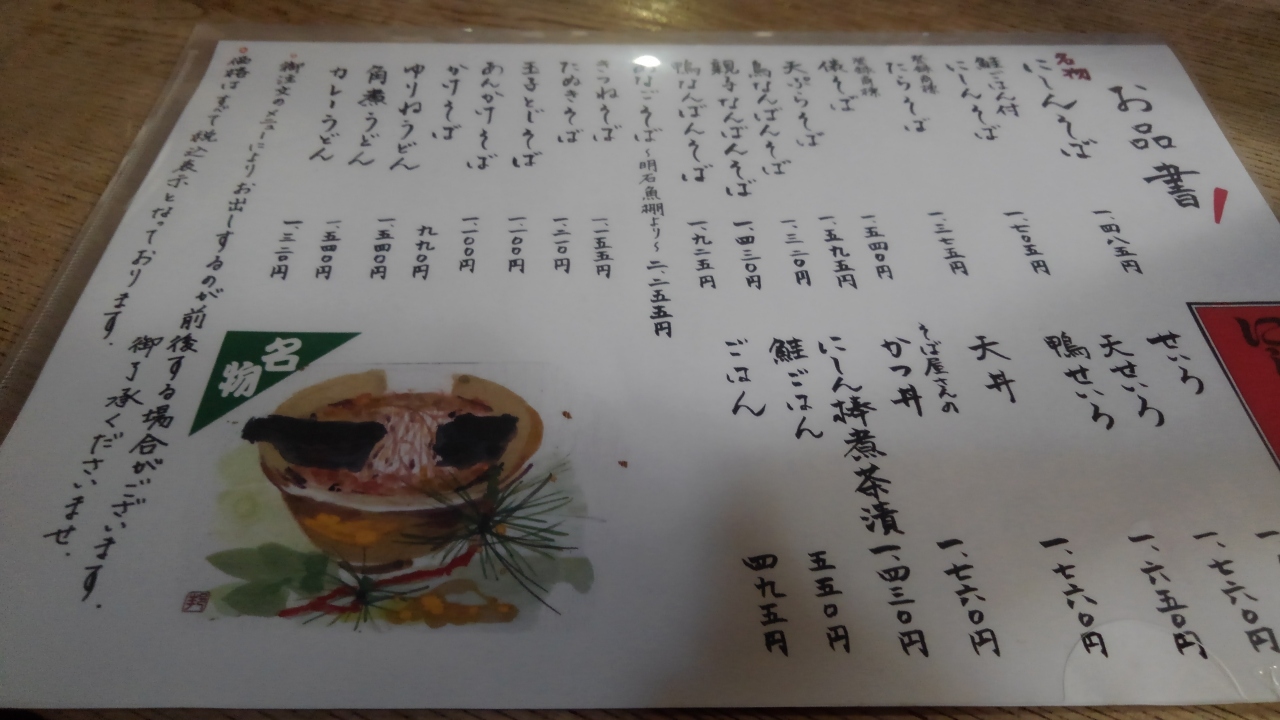 お品書
名物
にしんそば 一、四八五円
鮭ごはん付
にしんそば 一、七〇五円
たらそば 一、三七五円
俵そば 一、五四〇円
天ぷらそば 一、五九五円
鳥なんばんそば 一、三二〇円
親子なんばんそば 一、四三〇円
鴨なんばんそば 一、九二五円
あなごそば～明石魚棚より～ 二、二五五円
きつねそば 一、一五五円
たぬきそば 一、二一〇円
玉子とじそば 一、一〇〇円
あんかけそば 一、一〇〇円
かけそば 九九〇円
ゆりねうどん 一、五四〇円
角煮うどん 一、五四〇円
カレーうどん 一、三二〇円
せいろ
天せいろ 一、七六〇円
鴨せいろ 一、六五〇円
天丼 一、七六〇円
そば屋さんの
かつ丼 一、七六〇円
にしん棒煮茶漬 一、四三〇円
鮭ごはん 五五〇円
ごはん 四九五円
名物
御注文のメニューによりお出しするのが前後する場合がございます。
御了承くださいませ。
価格はすべて税込表示となっております。